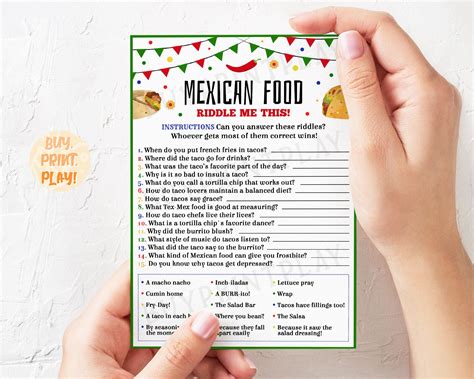 BUY,
PRINT,
PLAY!
MEXICAN FOOD
RIDDLE ME THIS!
INSTRUCTIONS Can you answer these riddles?
Whoever gets most of them correct wins!
1. When do you put french fries in tacos?
2. Where did the taco go for drinks?
3. What was the taco's favorite part of the day?
4. Why is it so bad to insult a taco?
5. What do you call a tortilla chip that works out?
6. How do taco lovers maintain a balanced diet?
7. How do tacos say grace?
8. What Tex-Mex food is good at measuring?
9. How do taco chefs live their lives?
10. What is a tortilla chip's favorite dance?
11. Why did the burrito blush?
12. What style of music do tacos listen to?
13. What did the taco say to the burrito?
14. What kind of Mexican food can give you frostbite?
15. Do you know why tacos get depressed?
• A macho nacho • Inch-iladas • Lettuce pray
• Cumin home • A BURR-ito! • Wrap
• Fry-Day! • The Salad Bar • Tacos have fillings too!
• A taco in each • Because • The Salsa
• By seasoning the moment • Because they fall apart easily • Because it saw the salad dressing!